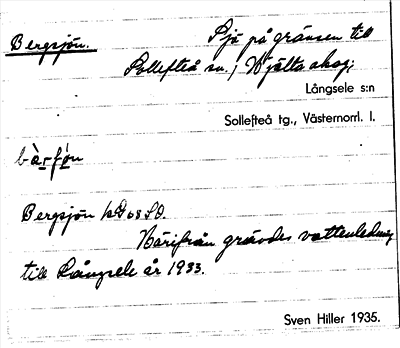 Bergsjön. Sjö på gränsen till
Sollefteå sn., Hjälta skog;
Långsele s:n
Sollefteå tg., Västernorrl. l.
Bergsjön
Härifrån grävdes vattenledning
till Långsele år 1933.
Sven Hiller 1935.